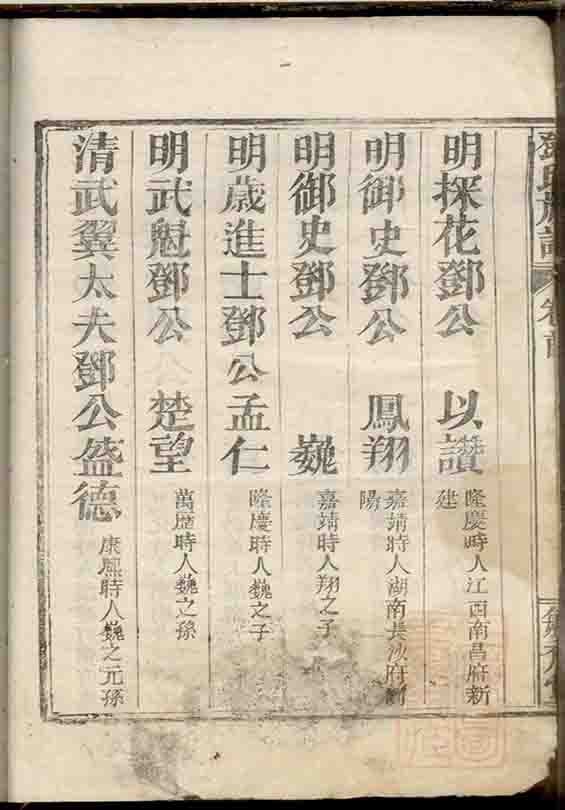 鄧氏族譜
卷首
明探花鄧公以讚 隆慶時人江西南昌府新
建
明御史鄧公鳳翔 嘉靖時人湖南長沙府瀏
陽
明御史鄧公巍 嘉靖時人翔之子
明歲進士鄧公孟仁 隆慶時人巍之子
明武魁鄧公楚望 萬歷時人巍之孫
清武翼大夫鄧公盛德 康熙時人巍之元孫